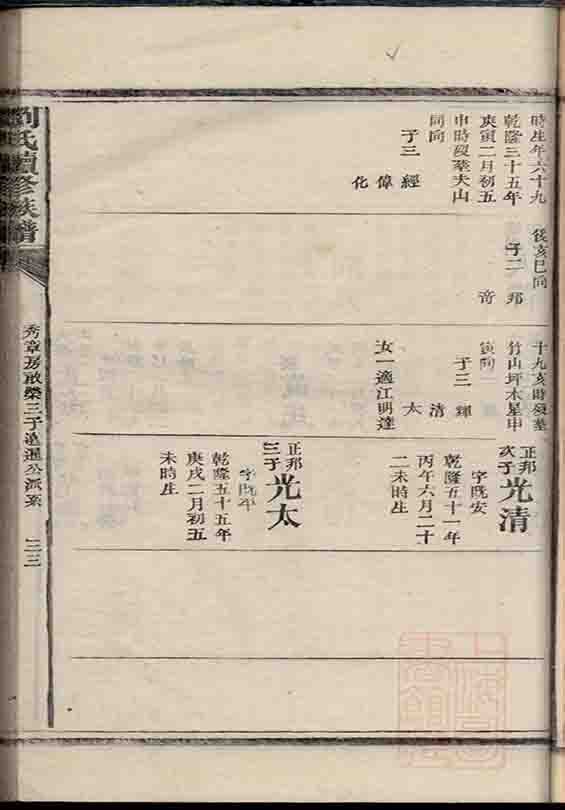 時生年六十九
乾隆三十五年
庚寅二月初五
申時歿葬夫山
同向
子三
經
偉
化
後亥巳向
子二
邦
音
十九亥時歿葬
竹山坪木星申
寅向
子三
輝
清
太
女一適江明達
正邦次子
光清
字既安
乾隆五十一年
丙午六月二十
二未時生
正邦三子
光太
字既平
乾隆五十五年
庚戌二月初五
未時生
劉氏續修族譜
秀章房啟榮三子 公派系
三三
上海
圖書館藏